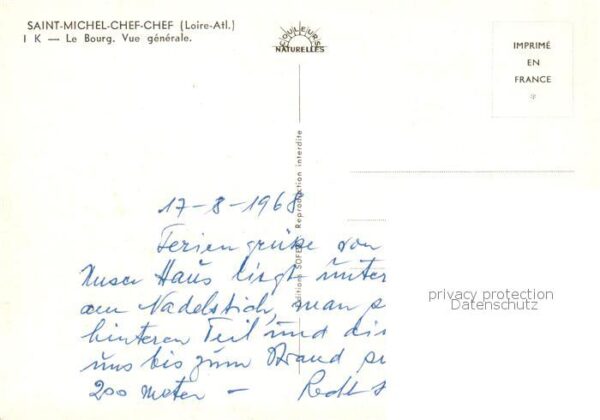 SAINT-MICHEL-CHEF-CHEF (Loire-Atl.)
I K — Le Bourg. Vue générale.
COULEURS
NATURELLES
IMPRIMÉ
EN
FRANCE
Editions SOFER Reproduction interdite
17-8-1968
Feriengrüße von
Unser Haus liegt unter
am Nadelstich, man s
hinteren Teil und di
uns bis zum Strand s
200 meter —
privacy protection
Datenschutz